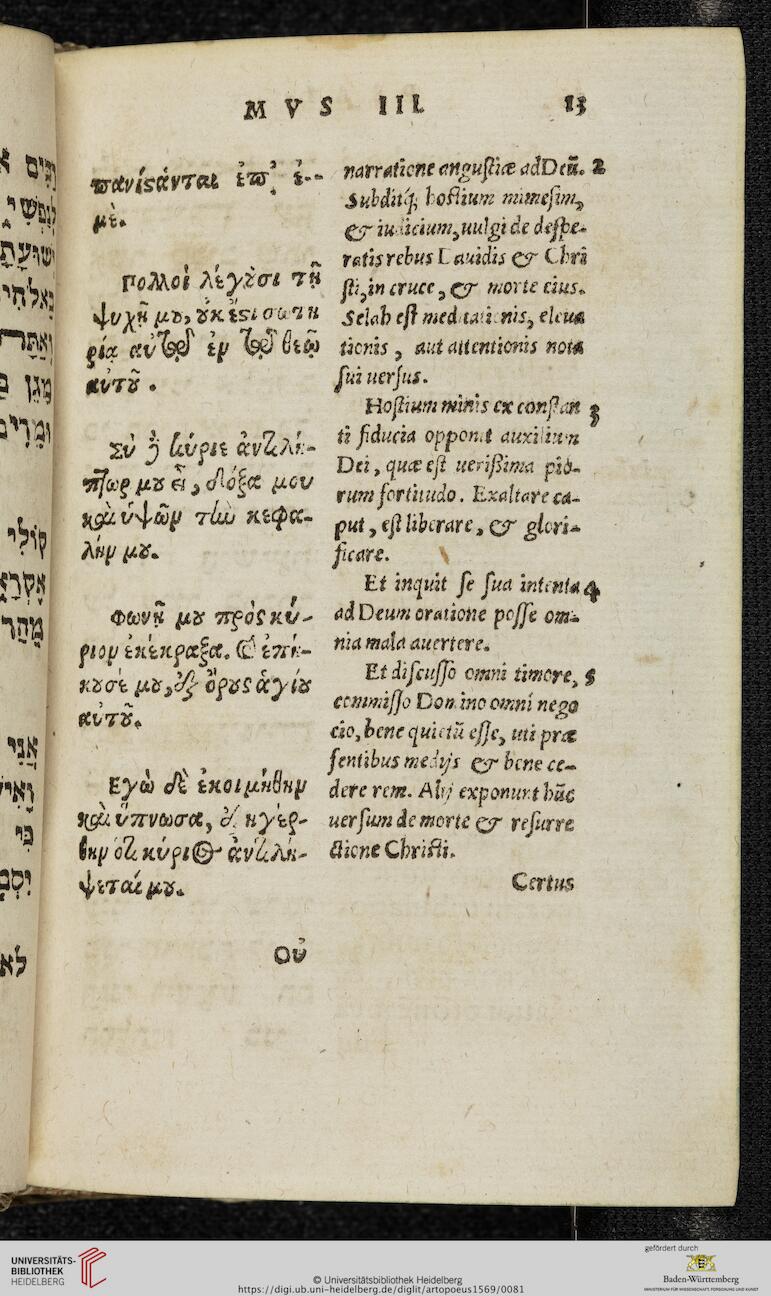 MVS III. 13
πανίςάνται ἐπ᾽ ἐ--
μὲ.
πολλοὶ λέγȣσι τῇ
ψυχῇ μȣ, ȣκ ἔςι σωτη
ρία αὐτῷ ἐν τῷ θεῷ
αὐτȣ͂.
Σὺ ϳ κύριε ἀντιλή-
πτωρ μȣ εἶ, δόξα μου
καὶ ὑψῶν τὴν κεφα-
λήν μȣ.
Φωνῇ μȣ πρὸς κύ-
ριον ἐκέκραξα. Καὶ ἐπή-
κȣσέ μȣ, ἐξ ὄρȣς ἁγίȣ
αὐτȣ͂.
Εγὼ δὲ ἐκοιμήθην
καὶ ὕπνωσα, ἐξηγέρ-
θην ὅτι κύριος ἀντιλή-
ψεταί μȣ.
Οὐ
narratione angustiæ ad Deū. 2
Subditq́; hostium mimesim,
& iudicium, uulgi de despe-
ratis rebus Dauidis & Chri
sti, in cruce, & morte eius.
Selah est meditationis, eleua
tionis, aut attentionis nota
sui uersus.
Hostium minis ex constan 3
ti fiducia opponit auxilium
Dei, quæ est uerißima pio-
rum fortitudo. Exaltare ca-
put, est liberare, & glori-
ficare.
Et inquit se sua intenta 4
ad Deum oratione posse om-
nia mala auertere.
Et discusso omni timore, 5
commisso Domino omni nego
cio, bene quietū esse, uti præ
sentibus medijs & bene ce-
dere rem. Alij exponunt hūc
uersum de morte & resurre
ctione Christi.
Certus
קוֹלִי
אֲנִי
כִּי
לא
UNIVERSITÄTS-
BIBLIOTHEK
HEIDELBERG
© Universitätsbibliothek Heidelberg
https://digi.ub.uni-heidelberg.de/diglit/artopoeus1569/0081
gefördert durch
Baden-Württemberg
MINISTERIUM FÜR WISSENSCHAFT, FORSCHUNG UND KUNST